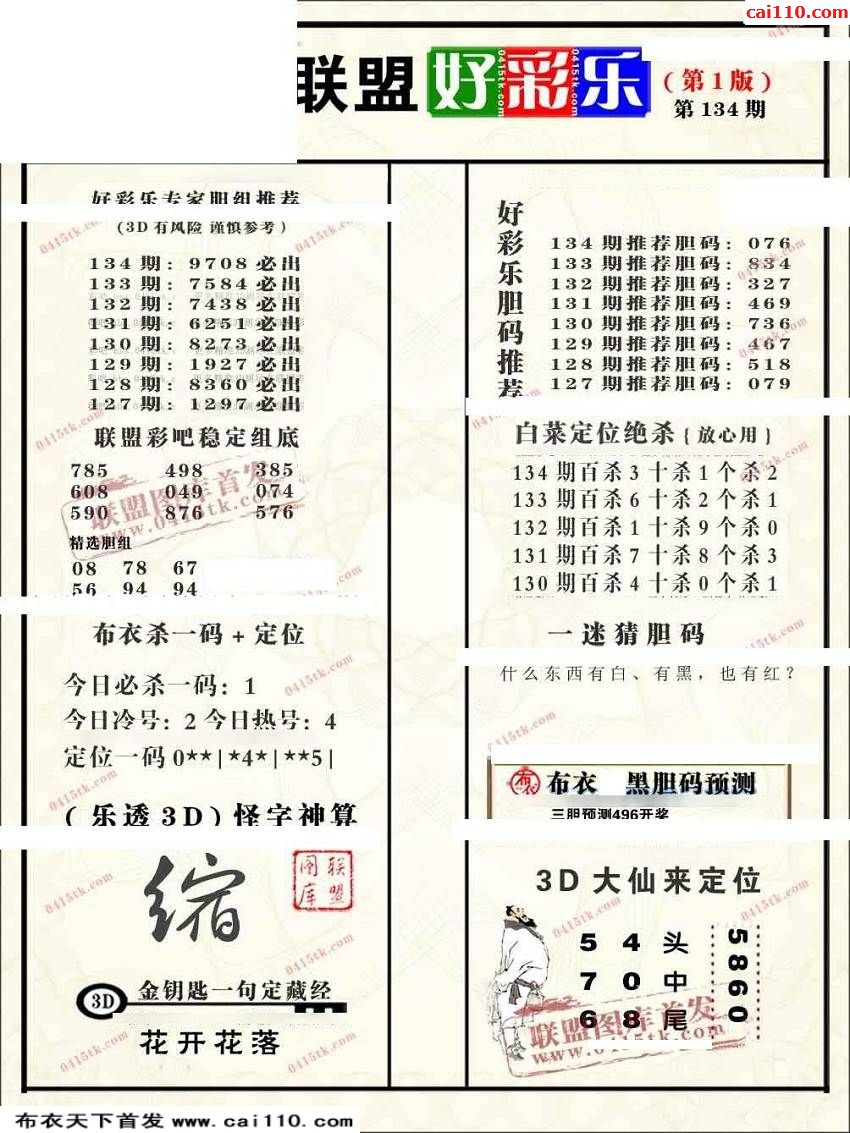 cai110.com
联盟好彩乐
(第1版)
第134期
好彩乐专家胆组推荐
(3D有风险 谨慎参考)
134期: 9708必出
133期: 7584必出
132期: 7438必出
131期: 6251必出
130期: 8273必出
129期: 1927必出
128期: 8360必出
127期: 1297必出
联盟彩吧稳定组底
785 498 385
608 049 074
590 876 576
精选胆组
08 78 67
56 94 94
布衣杀一码+定位
今日必杀一码: 1
今日冷号: 2 今日热号: 4
定位一码 0**|*4*|**5|
(乐透3D)怪字神算
缩
联盟图库
3D 金钥匙一句定藏经
花开花落
好彩乐胆码推荐
134期推荐胆码: 076
133期推荐胆码: 834
132期推荐胆码: 327
131期推荐胆码: 469
130期推荐胆码: 736
129期推荐胆码: 467
128期推荐胆码: 518
127期推荐胆码: 079
白菜定位绝杀{放心用}
134期百杀3十杀1个杀2
133期百杀6十杀2个杀1
132期百杀1十杀9个杀0
131期百杀7十杀8个杀3
130期百杀4十杀0个杀1
一迷猜胆码
什么东西有白、有黑,也有红?
布衣 黑胆码预测
三胆预测496开奖
3D大仙来定位
5 4 头
7 0 中
6 8 尾
5860
联盟图库首发
www.0415tk.com
布衣天下首发 www.cai110.com